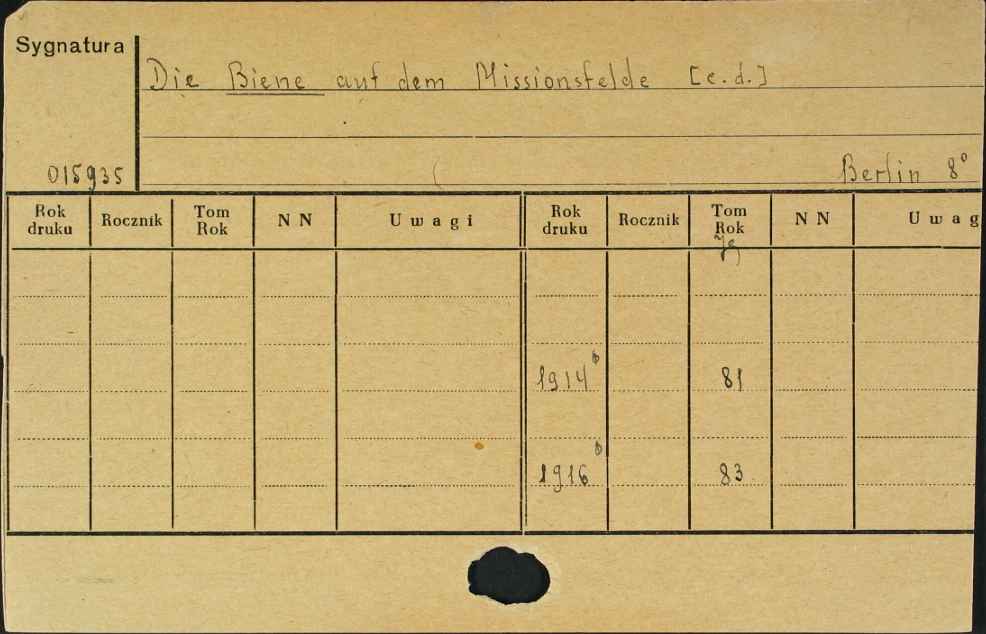 Sygnatura
Die Biene auf dem Missionsfelde [c.d.]
015935
Berlin 8°
Rok druku Rocznik Tom Rok N N Uwagi Rok druku Rocznik Tom Rok N N Uwag
Jg
1914 81
1916 83